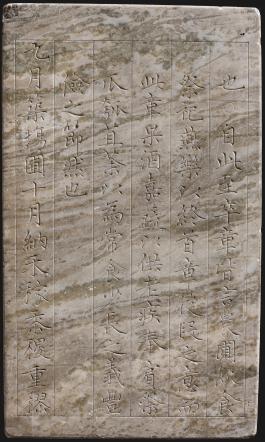 也 自此至卒章皆言農圃飲食
祭祀燕樂以終首章後段之意而
此章果酒嘉蔬以供老疾奉賓祭
瓜瓠苴荼以為常食少長之義豐
儉之節然也
九月築場圃十月納禾稼黍稷重穋